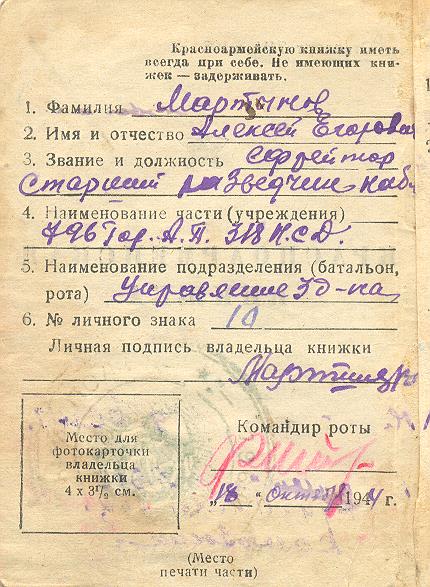 Красноармейскую книжку иметь
всегда при себе. Не имеющих кни-
жек — задерживать.
1. Фамилия Мартынов
2. Имя и отчество Алексей Егорович
3. Звание и должность Ефрейтор
Старший разведчик наб.
4. Наименование части (учреждения)
796 Гор. А.П. 318 Н.С.Д.
5. Наименование подразделения (батальон,
рота) Управление 3 д-на
6. № личного знака 10
Личная подпись владельца книжки
Место для
фотокарточки
владельца
книжки
4 х 3½ см.
Командир роты
„18" октября 1944 г.
(Место
печати части)